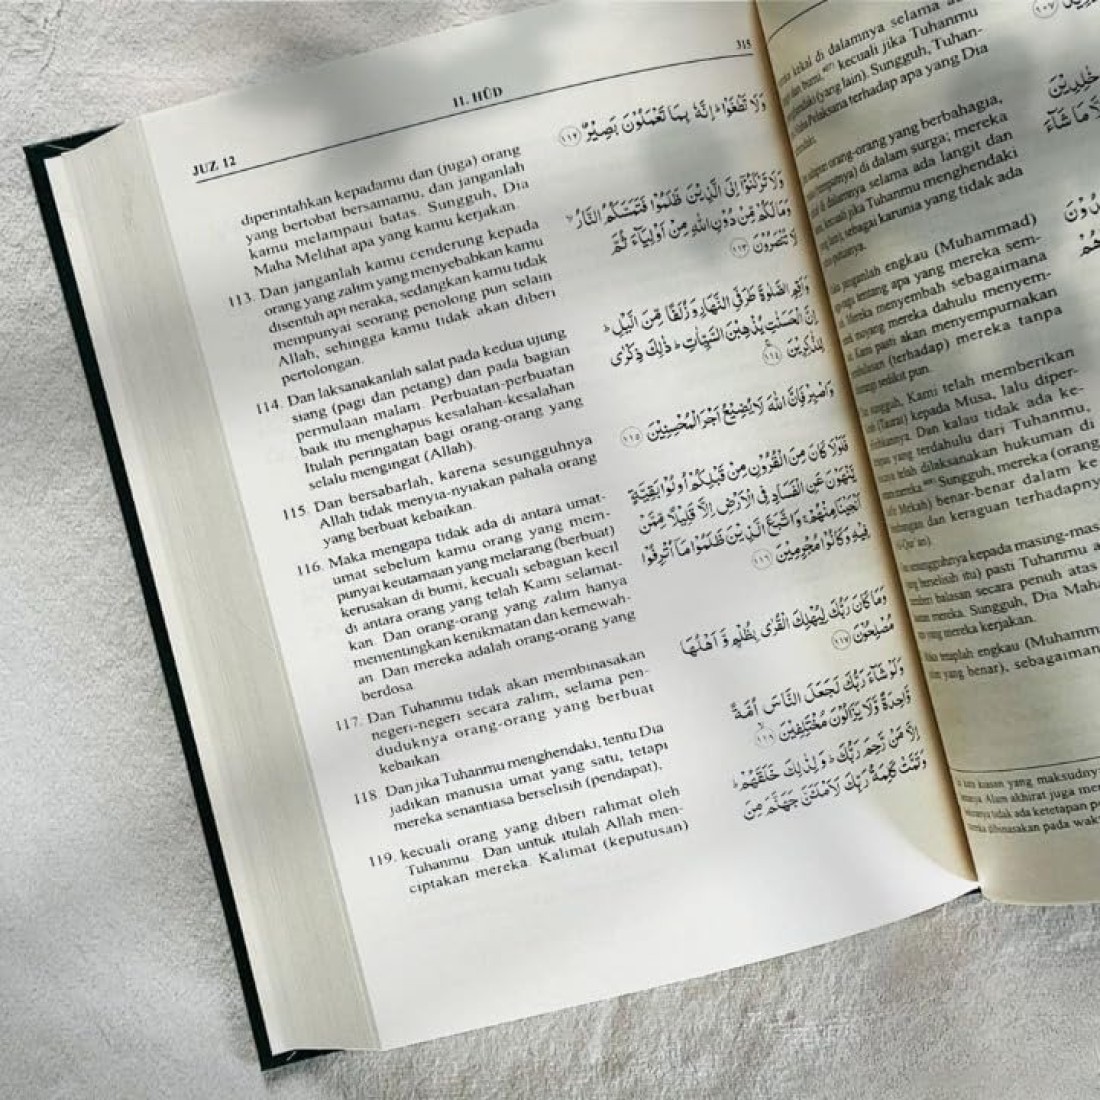 JUZ 12
11. HŪD
315
diperintahkan kepadamu dan (juga) orang
yang bertobat bersamamu, dan janganlah
kamu melampaui batas. Sungguh, Dia
Maha Melihat apa yang kamu kerjakan.
113. Dan janganlah kamu cenderung kepada
orang yang zalim yang menyebabkan kamu
disentuh api neraka, sedangkan kamu tidak
mempunyai seorang penolong pun selain
Allah, sehingga kamu tidak akan diberi
pertolongan.
114. Dan laksanakanlah salat pada kedua ujung
siang (pagi dan petang) dan pada bagian
permulaan malam. Perbuatan-perbuatan
baik itu menghapus kesalahan-kesalahan
Itulah peringatan bagi orang-orang yang
selalu mengingat (Allah).
115. Dan bersabarlah, karena sesungguhnya
Allah tidak menyia-nyiakan pahala orang
yang berbuat kebaikan.
116. Maka mengapa tidak ada di antara umat-
umat sebelum kamu orang yang mem-
punyai keutamaan yang melarang (berbuat)
kerusakan di bumi, kecuali sebagian kecil
di antara orang yang telah Kami selamat-
kan. Dan orang-orang yang zalim hanya
mementingkan kenikmatan dan kemewah-
an. Dan mereka adalah orang-orang yang
berdosa.
117. Dan Tuhanmu tidak akan membinasakan
negeri-negeri secara zalim, selama pen-
duduknya orang-orang yang berbuat
kebaikan.
118. Dan jika Tuhanmu menghendaki, tentu Dia
jadikan manusia umat yang satu, tetapi
mereka senantiasa berselisih (pendapat),
119. kecuali orang yang diberi rahmat oleh
Tuhanmu. Dan untuk itulah Allah men-
ciptakan mereka. Kalimat (keputusan)
وَلَا تَطْغَوْا ۗ اِنَّهٗ بِمَا تَعْمَلُوْنَ بَصِيْرٌ ١١٢
وَلَا تَرْكَنُوْٓا اِلَى الَّذِيْنَ ظَلَمُوْا فَتَمَسَّكُمُ النَّارُۙ
وَمَا لَكُمْ مِّنْ دُوْنِ اللّٰهِ مِنْ اَوْلِيَاۤءَ ثُمَّ
لَا تُنْصَرُوْنَ ١١٣
وَاَقِمِ الصَّلٰوةَ طَرَفَيِ النَّهَارِ وَزُلَفًا مِّنَ الَّيْلِ ۗ
اِنَّ الْحَسَنٰتِ يُذْهِبْنَ السَّيِّاٰتِ ۗ ذٰلِكَ ذِكْرٰى
لِلذّٰكِرِيْنَ ١١٤
وَاصْبِرْ فَاِنَّ اللّٰهَ لَا يُضِيْعُ اَجْرَ الْمُحْسِنِيْنَ ١١٥
فَلَوْلَا كَانَ مِنَ الْقُرُوْنِ مِنْ قَبْلِكُمْ اُولُوْا بَقِيَّةٍ
يَّنْهَوْنَ عَنِ الْفَسَادِ فِى الْاَرْضِ اِلَّا قَلِيْلًا مِّمَّنْ
اَنْجَيْنَا مِنْهُمْ ۚ وَاتَّبَعَ الَّذِيْنَ ظَلَمُوْا مَآ اُتْرِفُوْا
فِيْهِ وَكَانُوْا مُجْرِمِيْنَ ١١٦
وَمَا كَانَ رَبُّكَ لِيُهْلِكَ الْقُرٰى بِظُلْمٍ وَّاَهْلُهَا
مُصْلِحُوْنَ ١١٧
وَلَوْ شَاۤءَ رَبُّكَ لَجَعَلَ النَّاسَ اُمَّةً
وَّاحِدَةً وَّلَا يَزَالُوْنَ مُخْتَلِفِيْنَ ۙ ١١٨
اِلَّا مَنْ رَّحِمَ رَبُّكَ ۗ وَلِذٰلِكَ خَلَقَهُمْ ۗ
وَتَمَّتْ كَلِمَةُ رَبِّكَ لَاَمْلَـَٔنَّ جَهَنَّمَ مِنَ
kekal di dalamnya selama
dan bumi, kecuali jika Tuhanmu
(yang lain). Sungguh, Tuhan-
Pelaksana terhadap apa yang Dia
orang-orang yang berbahagia,
di dalam surga; mereka
di dalamnya selama ada langit dan
kecuali jika Tuhanmu menghendaki
sebagai karunia yang tidak ada
janganlah engkau (Muhammad)
tentang apa yang mereka sem-
Mereka menyembah sebagaimana
moyang mereka dahulu menyem-
Kami pasti akan menyempurnakan
(terhadap) mereka tanpa
sedikit pun.
sungguh, Kami telah memberikan
(Taurat) kepada Musa, lalu diper-
Dan kalau tidak ada ke-
yang terdahulu dari Tuhanmu,
telah dilaksanakan hukuman di
mereka. Sungguh, mereka (orang
Mekah) benar-benar dalam ke-
dan keraguan terhadapnya
kepada masing-mas
berselisih itu) pasti Tuhanmu
balasan secara penuh atas
mereka. Sungguh, Dia Maha
yang mereka kerjakan.
engkau (Muhamm
yang benar), sebagaiman
kiasan yang maksudny
Alam akhirat juga me
tidak ada ketetapan
dibinasakan pada wak
خٰلِدِيْنَ
مَا شَاۤءَ